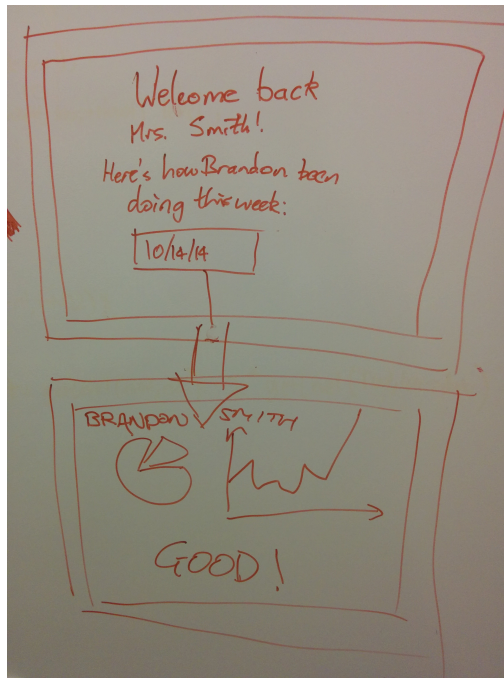 Welcome back
Mrs. Smith!
Here's how Brandon been
doing this week:
10/14/14
BRANDON SMITH
GOOD!